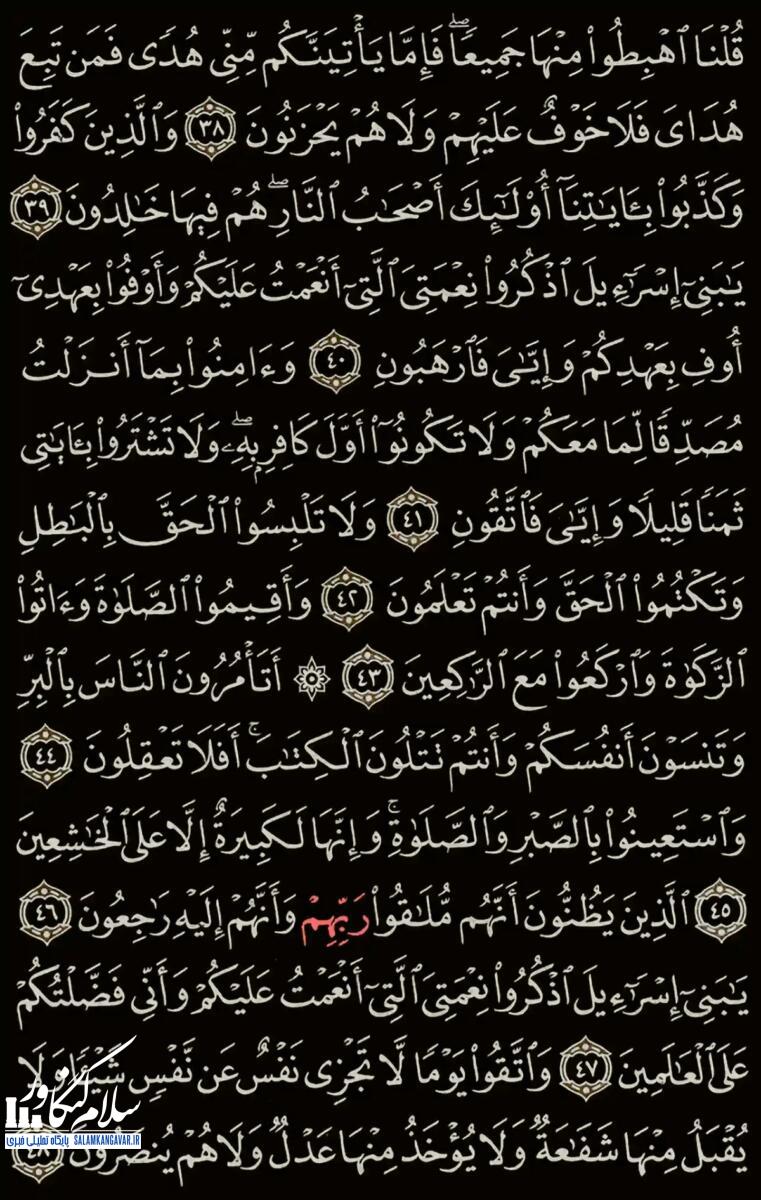 قُلۡنَا ٱهۡبِطُواْ مِنۡهَا جَمِيعٗاۖ فَإِمَّا يَأۡتِيَنَّكُم مِّنِّي هُدٗى فَمَن تَبِعَ
هُدَايَ فَلَا خَوۡفٌ عَلَيۡهِمۡ وَلَا هُمۡ يَحۡزَنُونَ ٣٨ وَٱلَّذِينَ كَفَرُواْ
وَكَذَّبُواْ بِـَٔايَٰتِنَآ أُوْلَٰٓئِكَ أَصۡحَٰبُ ٱلنَّارِۖ هُمۡ فِيهَا خَٰلِدُونَ ٣٩
يَٰبَنِيٓ إِسۡرَٰٓءِيلَ ٱذۡكُرُواْ نِعۡمَتِيَ ٱلَّتِيٓ أَنۡعَمۡتُ عَلَيۡكُمۡ وَأَوۡفُواْ بِعَهۡدِيٓ
أُوفِ بِعَهۡدِكُمۡ وَإِيَّٰيَ فَٱرۡهَبُونِ ٤٠ وَءَامِنُواْ بِمَآ أَنزَلۡتُ
مُصَدِّقٗا لِّمَا مَعَكُمۡ وَلَا تَكُونُوٓاْ أَوَّلَ كَافِرِۭ بِهِۦۖ وَلَا تَشۡتَرُواْ بِـَٔايَٰتِي
ثَمَنٗا قَلِيلٗا وَإِيَّٰيَ فَٱتَّقُونِ ٤١ وَلَا تَلۡبِسُواْ ٱلۡحَقَّ بِٱلۡبَٰطِلِ
وَتَكۡتُمُواْ ٱلۡحَقَّ وَأَنتُمۡ تَعۡلَمُونَ ٤٢ وَأَقِيمُواْ ٱلصَّلَوٰةَ وَءَاتُواْ
ٱلزَّكَوٰةَ وَٱرۡكَعُواْ مَعَ ٱلرَّٰكِعِينَ ٤٣ ۞ أَتَأۡمُرُونَ ٱلنَّاسَ بِٱلۡبِرِّ
وَتَنسَوۡنَ أَنفُسَكُمۡ وَأَنتُمۡ تَتۡلُونَ ٱلۡكِتَٰبَۚ أَفَلَا تَعۡقِلُونَ ٤٤
وَٱسۡتَعِينُواْ بِٱلصَّبۡرِ وَٱلصَّلَوٰةِۚ وَإِنَّهَا لَكَبِيرَةٌ إِلَّا عَلَى ٱلۡخَٰشِعِينَ
٤٥ ٱلَّذِينَ يَظُنُّونَ أَنَّهُم مُّلَٰقُواْ رَبِّهِمۡ وَأَنَّهُمۡ إِلَيۡهِ رَٰجِعُونَ ٤٦
يَٰبَنِيٓ إِسۡرَٰٓءِيلَ ٱذۡكُرُواْ نِعۡمَتِيَ ٱلَّتِيٓ أَنۡعَمۡتُ عَلَيۡكُمۡ وَأَنِّي فَضَّلۡتُكُمۡ
عَلَى ٱلۡعَٰلَمِينَ ٤٧ وَٱتَّقُواْ يَوۡمٗا لَّا تَجۡزِي نَفۡسٌ عَن نَّفۡسٖ شَيۡـٔٗا وَلَا
يُقۡبَلُ مِنۡهَا شَفَٰعَةٞ وَلَا يُؤۡخَذُ مِنۡهَا عَدۡلٞ وَلَا هُمۡ يُنصَرُونَ ٤٨
سلام کنگاور
پایگاه تحلیلی خبری SALAMKANGAVAR.IR